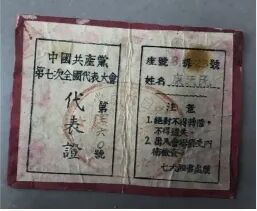 中國共產黨
第七次全國代表大會
代表證
第 六〇號
座號 排 號
姓名
注意
1.絕對不得轉借，
不得遺失。
2.出入會場須交門
衛檢查。
七大秘書處製